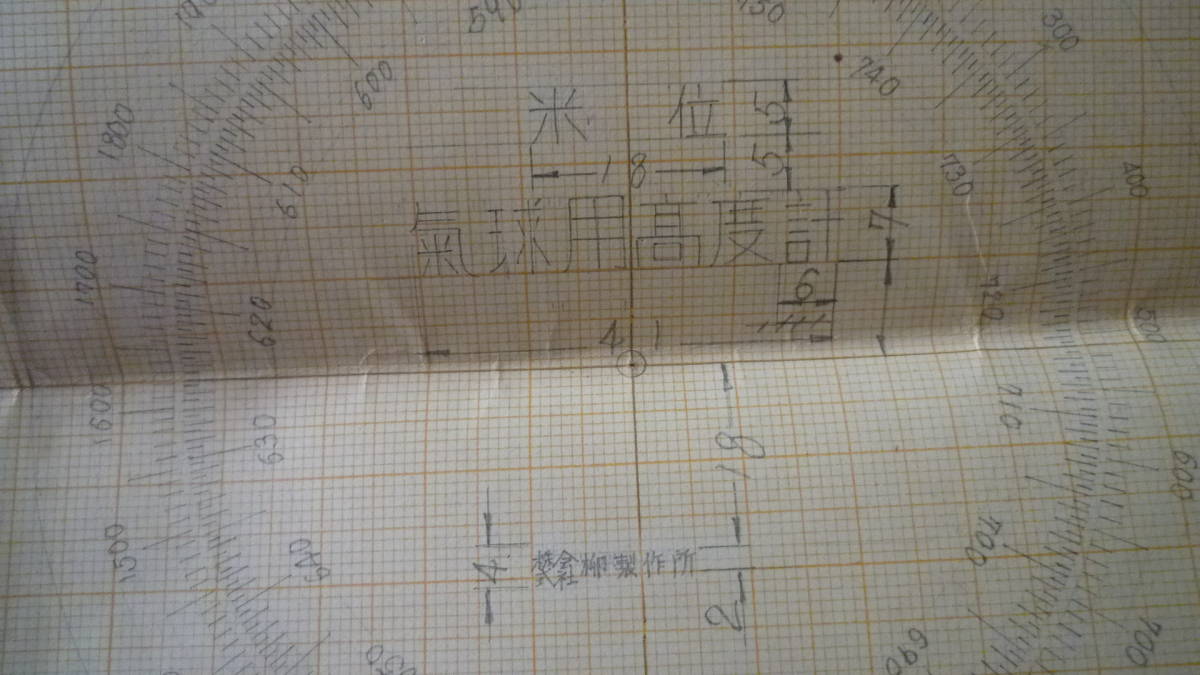 590
750
600
740
300
1800
米 位
5
5
18
610
730
400
氣球用高度計
7
1700
6
620
720
500
41
1600
630
710
18
600
1500
640
700
4
株式会社 柳製作所
2
690
700